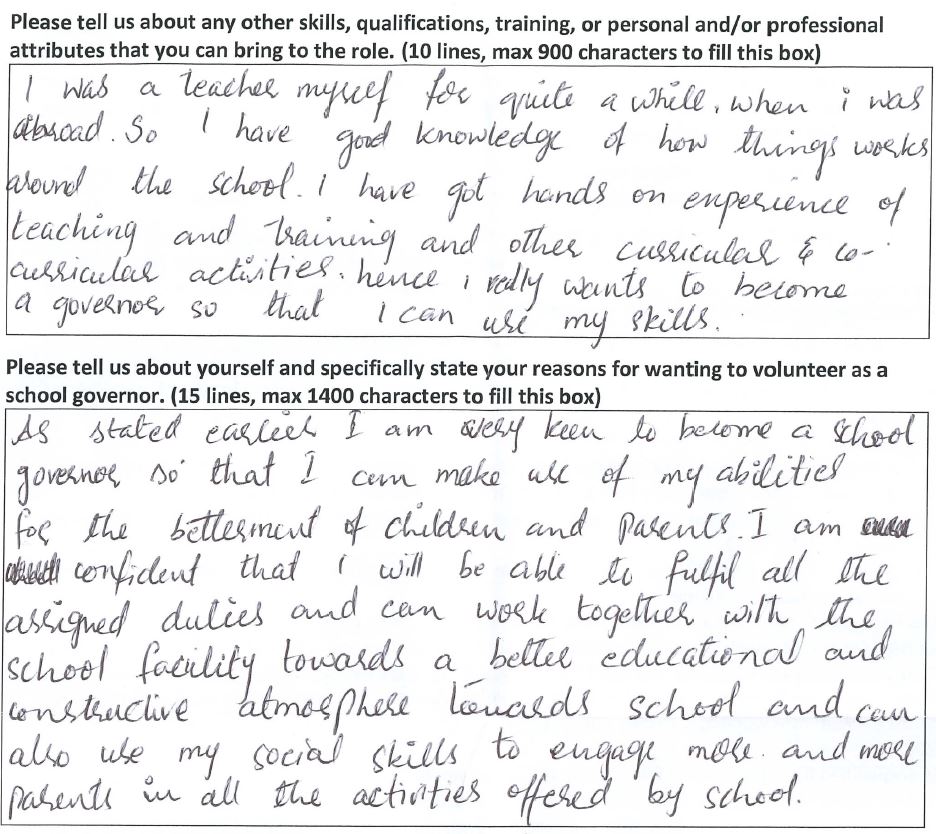 Please tell us about any other skills, qualifications, training, or personal and/or professional
attributes that you can bring to the role. (10 lines, max 900 characters to fill this box)
I was a teacher myself for quite a while, when i was
abroad. So I have good knowledge of how things works
around the school. i have got hands on experience of
teaching and training and other curricular & co-
curricular activities. hence i really wants to become
a governor so that I can use my skills.
Please tell us about yourself and specifically state your reasons for wanting to volunteer as a
school governor. (15 lines, max 1400 characters to fill this box)
As stated earlier I am very keen to become a school
governor, so that I can make use of my abilities
for the betterment of children and parents. I am
confident that i will be able to fulfil all the
assigned duties and can work together with the
school facility towards a better educational and
constructive atmosphere towards school and can
also use my social skills to engage more and more
parents in all the activities offered by school.